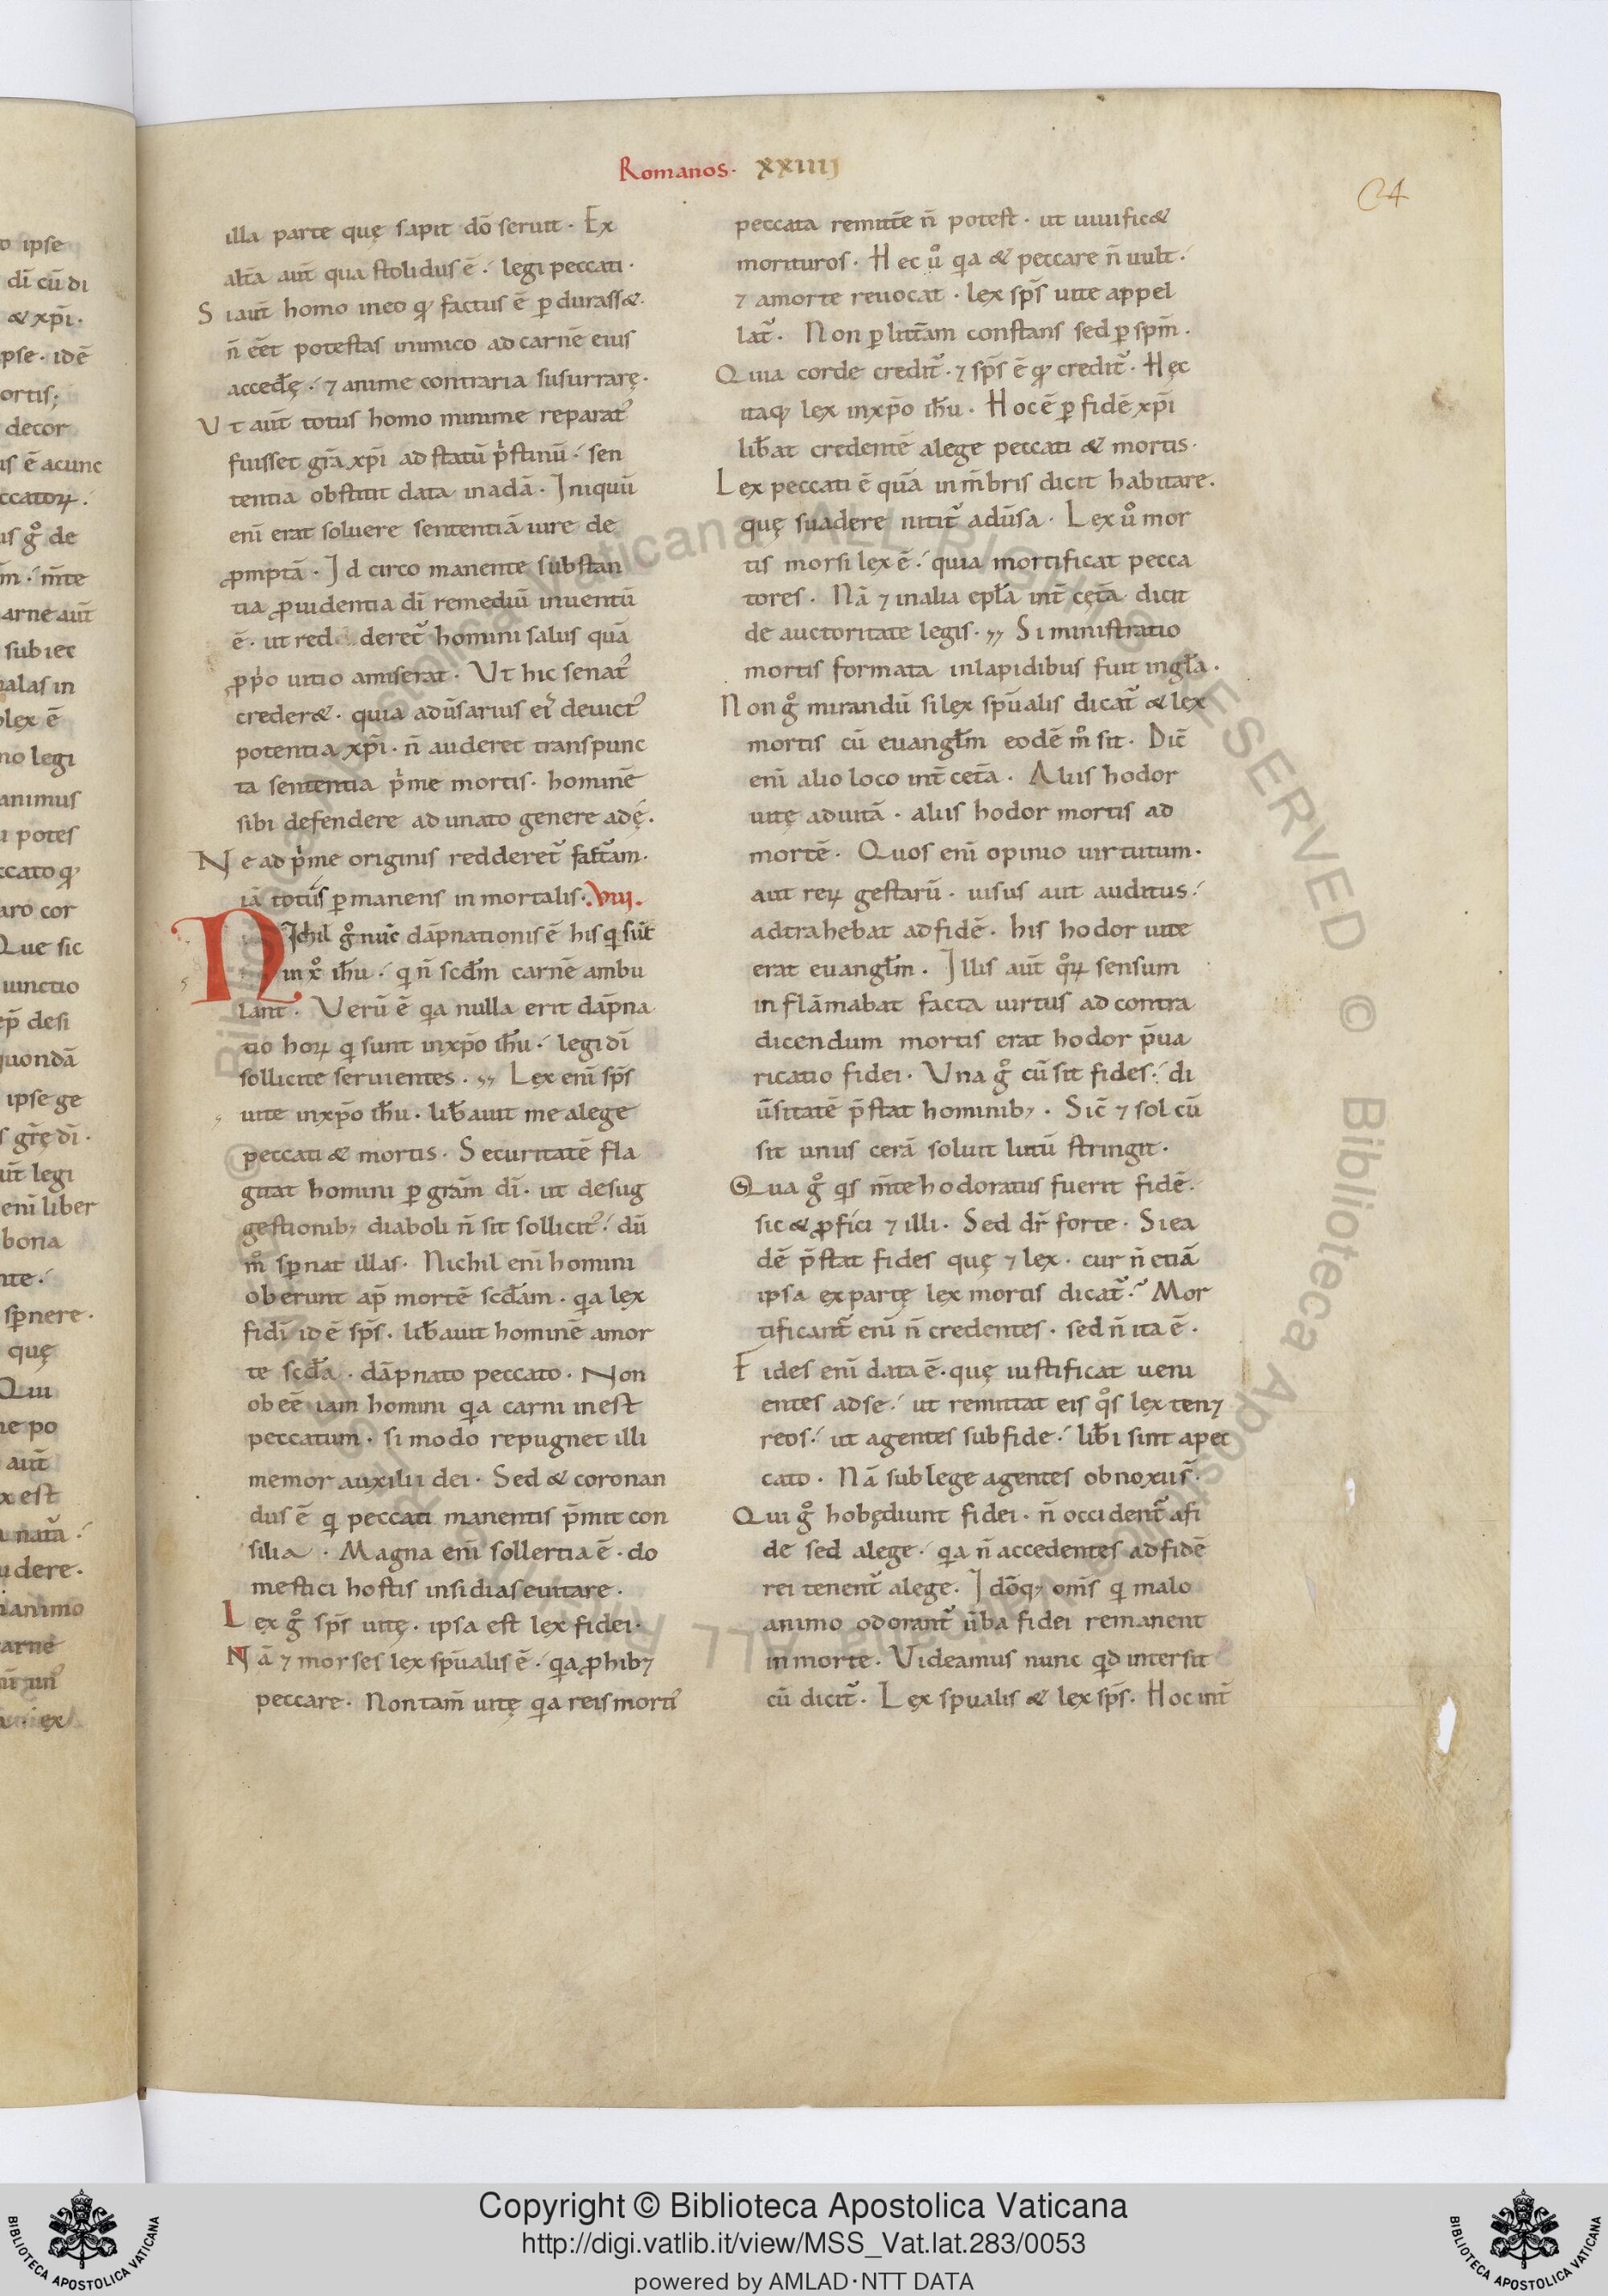 Romanos. XXIIIJ
24
illa parte quę sapit dō seruit. Ex
alt̄a aut̄ qua stolidus ē. legi peccati.
Siaut̄ homo ineo qđ factus ē ꝑdurass&.
n̄ eēt potestas inimico ad carnē eius
accedr̄ę. ⁊ anime contraria susurrarę.
Vt aut̄ totus homo minime reparat᷑
fuisset gr̄a xp̄i ad statū p̓stinū. sen
tentia obstitit data in adā. Iniquū
eni᷑ erat soluere sententiā iure de
ꝓmptā. Id circo manente substan
tia ꝓuidentia dī remediū inuentū
ē. ut red deret᷑ homini salus quā
ꝓpo uitio amiserat. Vt hic senat᷑
creder&. quia adūsarius ei᷑ deuict᷑
potentia xp̄i. n̄ auderet transpunc
ta sententia p̓me mortis. hominē
sibi defendere ad unato genere adę.
Ne ad p̓me originis redderet᷑ fact᷑am.
iā totus ꝑmanens in mortalis. VIII.
Nichil g̊ nūc dāpnationis ē his q̓ sūt
in x̊ ih̄u. q̓ n̄ scd̄m carnē ambu
lant. Verū ē qa nulla erit dāpna
tio hoꝝ q̓ sunt inxp̄o ih̄u. legi dī
sollicite seruientes. Lex eni᷑ sp̄s
uite inxp̄o ih̄u. lib̄auit me alege
peccati & mortis. Securitatē fla
gitat homini ꝑ grām dī. ut desug
gestionib; diaboli n̄ sit sollicit᷑. dū
m̊ sꝑnat illas. Nichil eni᷑ homini
oberunt ap̄ mortē scd̄am. qa lex
fidī id ē sp̄s. lib̄auit hominē amor
te scd̄a. dāpnato peccato. Non
obeē iam homini qa carni inest
peccatum. si modo repugnet illi
memor auxilii dei. Sed & coronan
dus ē q̓ peccati manentis p̄mit con
silia. Magna eni᷑ sollertia ē. do
mestici hostis insidias euitare.
Lex g̊ sp̄s uitę. ipsa est lex fidei.
Nā ⁊ morses lex sp̄ualis ē. qa ꝓhib;
peccare. Non tam̄ uitę qa reis morti᷑
peccata remittēe n̄ potest. ut uiuific&
morituros. Hec ů qa & peccare n̄ uult.
⁊ amorte reuocat. lex sp̄s uite appel
lat᷑. Non ꝑ litt̄am constans sed ꝑ sp̄m.
Quia corde credit᷑. ⁊ sp̄s ē qđ credit᷑. Hęc
itaq; lex inxp̄o ih̄u. Hoc ē ꝑ fidē xp̄i
lib̄at credentē alege peccati & mortis.
Lex peccati ē quā in m̄bris dicit habitare.
quę suadere nitit᷑ adūsa. Lex ů mor
tis morsi lex ē. quia mortificat pecca
tores. Nā ⁊ inalia epl̄a int̄ cęt̄a dicit
de auctoritate legis. Si ministratio
mortis formata inlapidibus fuit ingl̄a.
Non g̊ mirandū silex sp̄ualis dicat᷑ & lex
mortis cū euangl̄m eodē m̊ sit. Dic̄
eni᷑ alio loco int̄ cet̄a. Aliis hodor
uitę aduitā. aliis hodor mortis ad
mortē. Quos eni᷑ opinio uirtutum.
aut reꝝ gestarū. uisus aut auditus.
adtrahebat adfidē. his hodor uite
erat euangl̄m. Illis aut̄ q̊ꝝ sensum
inflāmabat facta uirtus ad contra
dicendum mortis erat hodor p̄ua
ricatio fidei. Vna g̊ cū sit fides. di
ūsitatē p̄stat hominib;. Sic̄ ⁊ sol cū
sit unus cerā soluit lutū stringit.
Qua g̊ q̓s m̄te hodoratus fuerit fidē.
sic & ꝓfici ⁊ illi. Sed dr̄ forte. Siea
dē p̄stat fides quę ⁊ lex. cur n̄ etiā
ipsa expartę lex mortis dicat᷑. Mor
tificant᷑ eni᷑ n̄ credentes. sed n̄ ita ē.
Fides eni᷑ data ē. quę iustificat ueni
entes adse. ut remittat eis q̊s lex ten;
reos. ut agentes subfide. lib̄i sint apec
cato. Nā sublege agentes obnoxii s̄.
Qui g̊ hobędiunt fidei. n̄ occident᷑ afi
de sed alege. qa n̄ accedentes adfidē
rei tenent᷑ alege. Idōq; om̄s q̓ malo
animo odorant᷑ ūba fidei remanent
in morte. Videamus nunc qd intersit
cū dicit᷑. Lex spualis & lex sp̄s. Hoc int̄
Copyright © Biblioteca Apostolica Vaticana
http://digi.vatlib.it/view/MSS_Vat.lat.283/0053
powered by AMLAD·NTT DATA